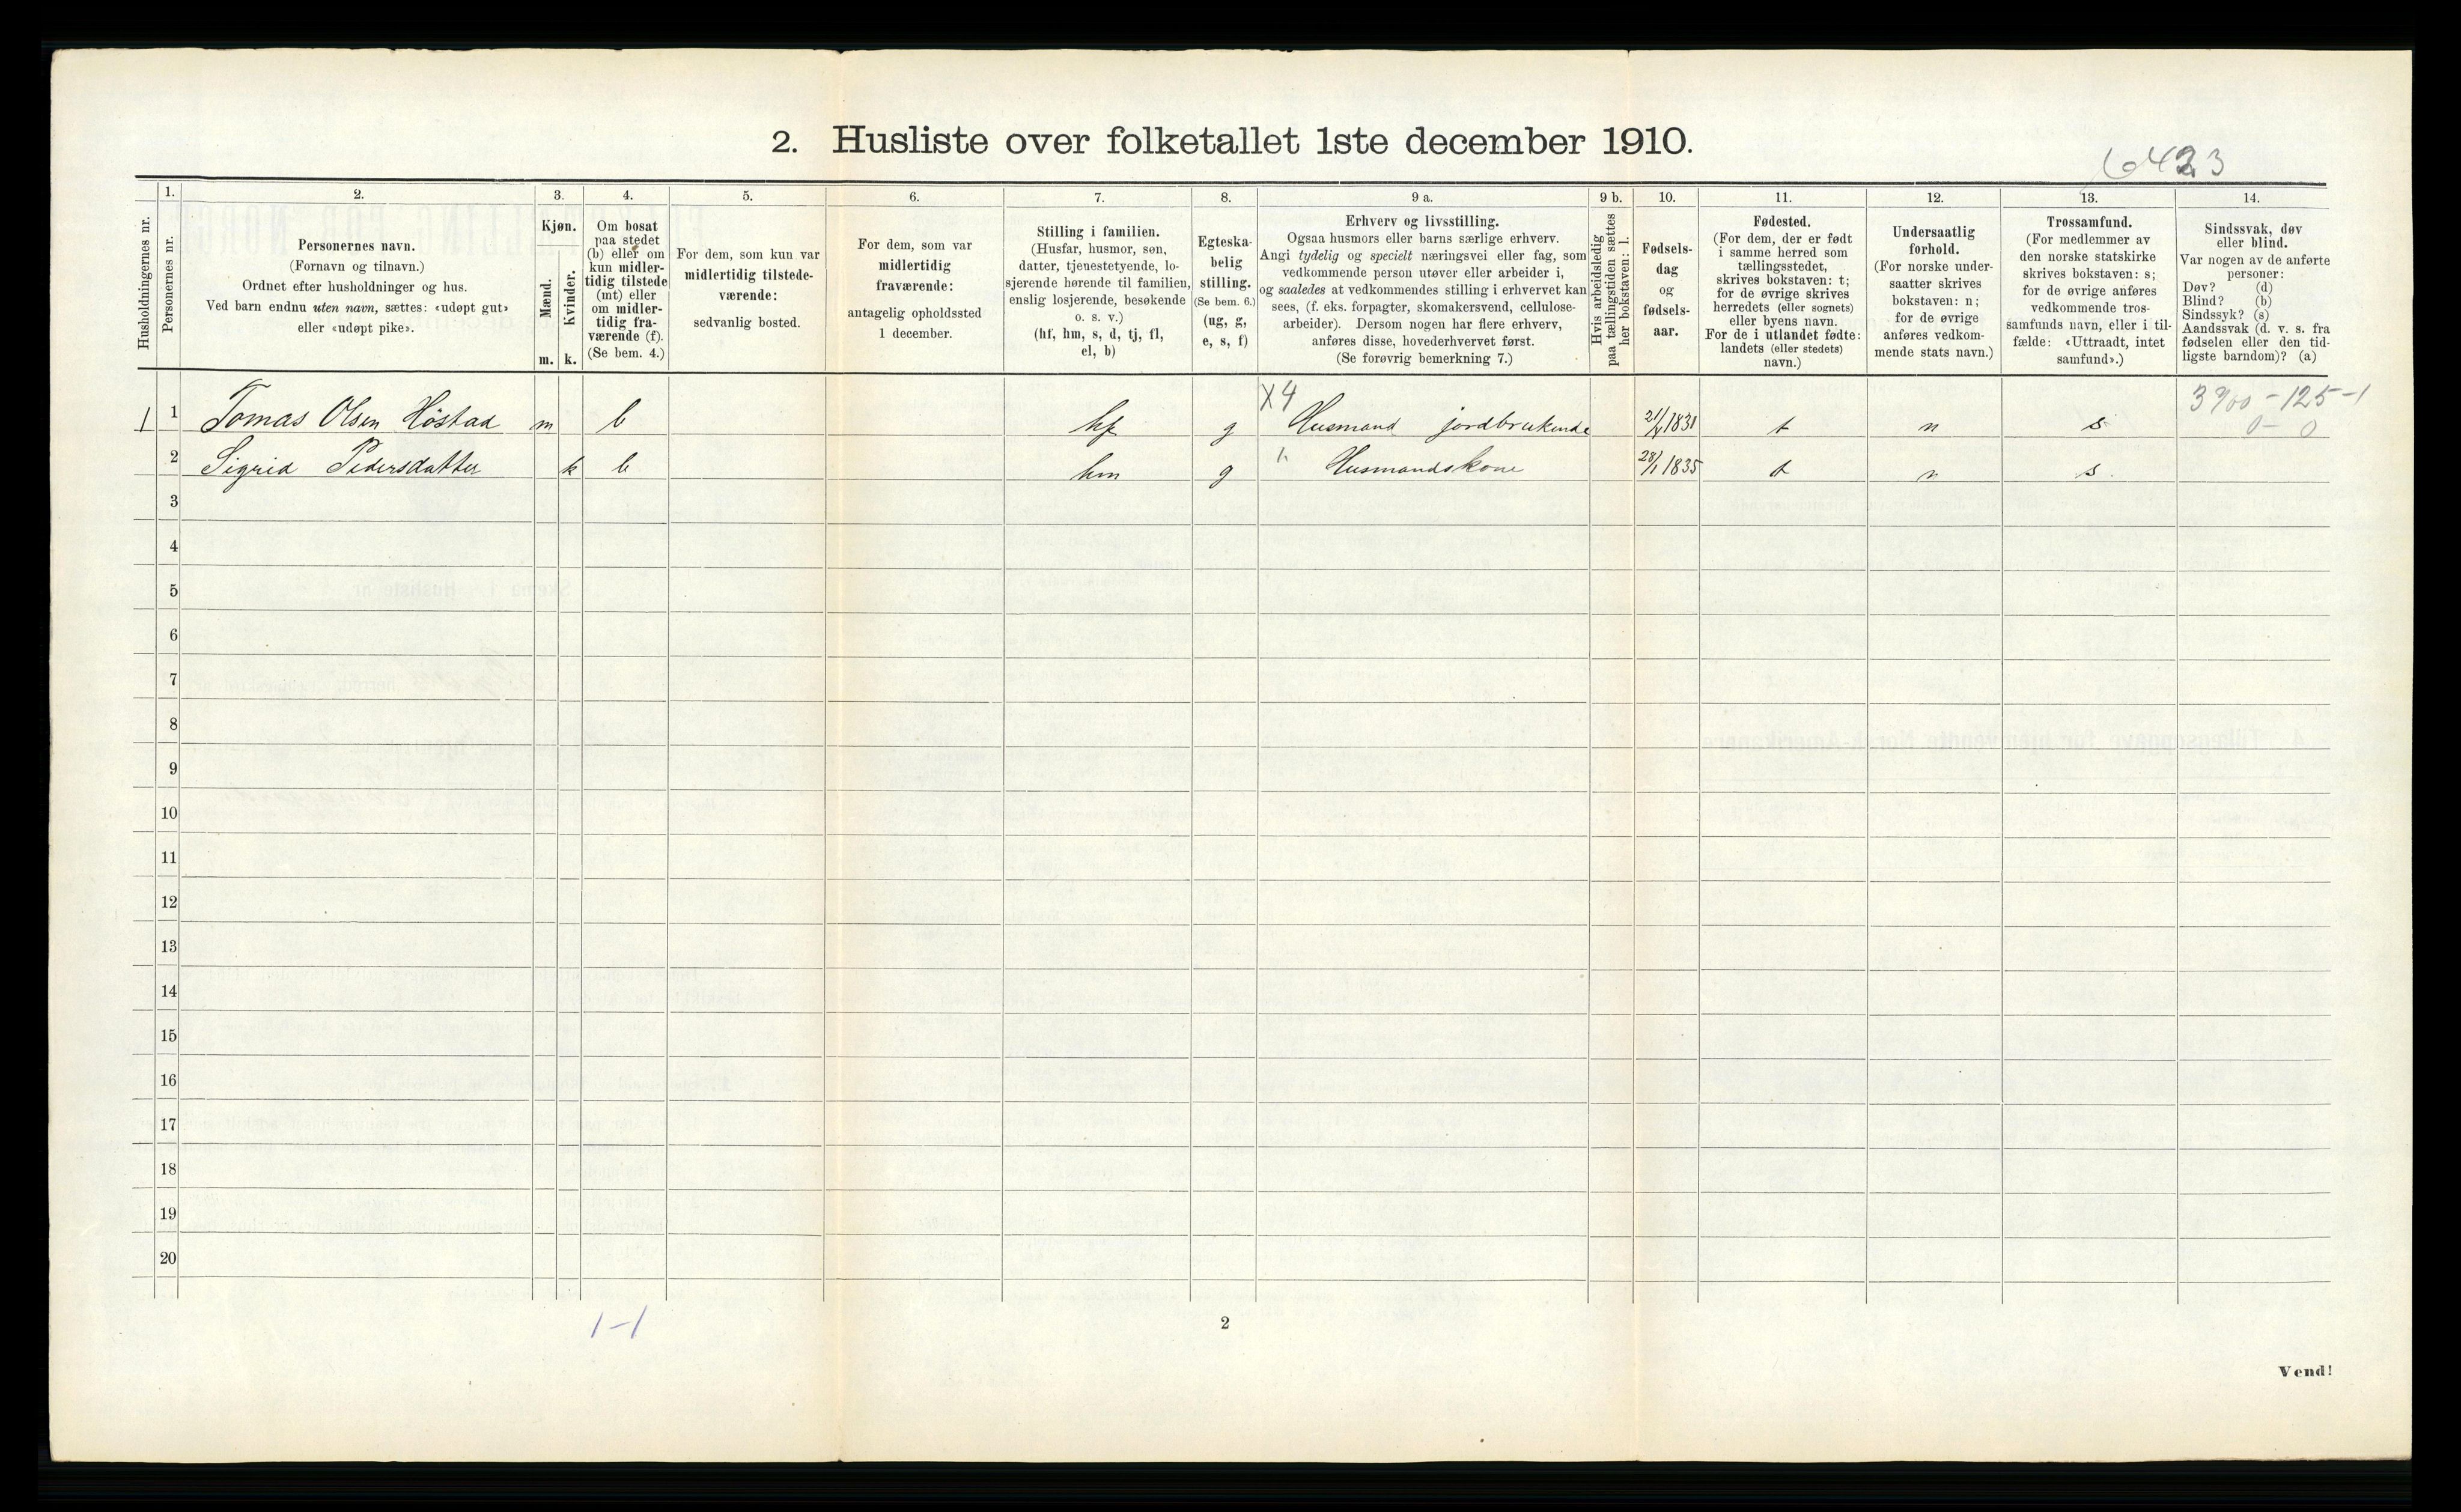 2. Husliste over folketallet 1ste december 1910.
6423
Husholdningernes nr.
1.
Personernes nr.
2.
Personernes navn.
(Fornavn og tilnavn.)
Ordnet efter husholdninger og hus.
Ved barn endnu uten navn, sættes: «udøpt gut»
eller «udøpt pike».
3.
Kjøn.
Mænd.
Kvinder.
m. k.
4.
Om bosat
paa stedet
(b) eller om
kun midler-
tidig tilstede
(mt) eller
om midler-
tidig fra-
værende (f).
(Se bem. 4.)
5.
For dem, som kun var
midlertidig tilstede-
værende:
sedvanlig bosted.
6.
For dem, som var
midlertidig
fraværende:
antagelig opholdssted
1 december.
7.
Stilling i familien.
(Husfar, husmor, søn,
datter, tjenestetyende, lo-
sjerende hørende til familien,
enslig losjerende, besøkende
o. s. v.)
(hf, hm, s, d, tj, fl,
el, b)
8.
Egteska-
belig
stilling.
(Se bem. 6.)
(ug, g,
e, s, f)
9 a.
Erhverv og livsstilling.
Ogsaa husmors eller barns særlige erhverv.
Angi tydelig og specielt næringsvei eller fag, som
vedkommende person utøver eller arbeider i,
og saaledes at vedkommendes stilling i erhvervet kan
sees, (f. eks. forpagter, skomakersvend, cellulose-
arbeider). Dersom nogen har flere erhverv,
anføres disse, hovederhvervet først.
(Se forøvrig bemerkning 7.)
9 b.
Hvis arbeidsledig
paa tællingstiden sættes
her bokstaven: l.
10.
Fødsels-
dag
og
fødsels-
aar.
11.
Fødested.
(For dem, der er født
i samme herred som
tællingsstedet,
skrives bokstaven: t;
for de øvrige skrives
herredets (eller sognets)
eller byens navn.
For de i utlandet fødte:
landets (eller stedets)
navn.)
12.
Undersaatlig
forhold.
(For norske under-
saatter skrives
bokstaven: n;
for de øvrige
anføres vedkom-
mende stats navn.)
13.
Trossamfund.
(For medlemmer av
den norske statskirke
skrives bokstaven: s;
for de øvrige anføres
vedkommende tros-
samfunds navn, eller i til-
fælde: «Uttraadt, intet
samfund».)
14.
Sindssvak, døv
eller blind.
Var nogen av de anførte
personer:
Døv? (d)
Blind? (b)
Sindssyk? (s)
Aandssvak (d. v. s. fra
fødselen eller den tid-
ligste barndom)? (a)
X4 3900-125-1
1 1 Tomas Olsen Höstad m b hf g Husmand jordbrukende 1831 t n s 0-0
2 Sigrid Pedersdatter k b hm g Husmandskone 28/1 1835 t n s
3
4
5
6
7
8
9
10
11
12
13
14
15
16
17
18
19
20
1-1
2
Vend!